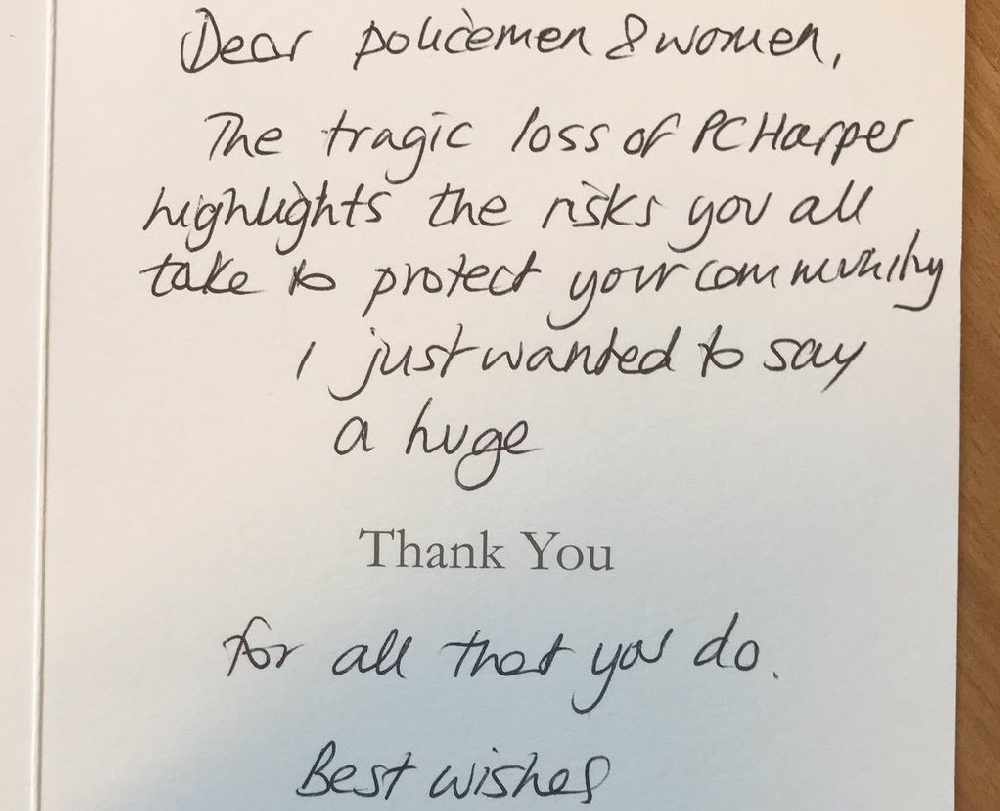 Dear policemen & women,
The tragic loss of PC Harper
highlights the risks you all
take to protect your community
I just wanted to say
a huge
Thank You
for all that you do.
Best wishes